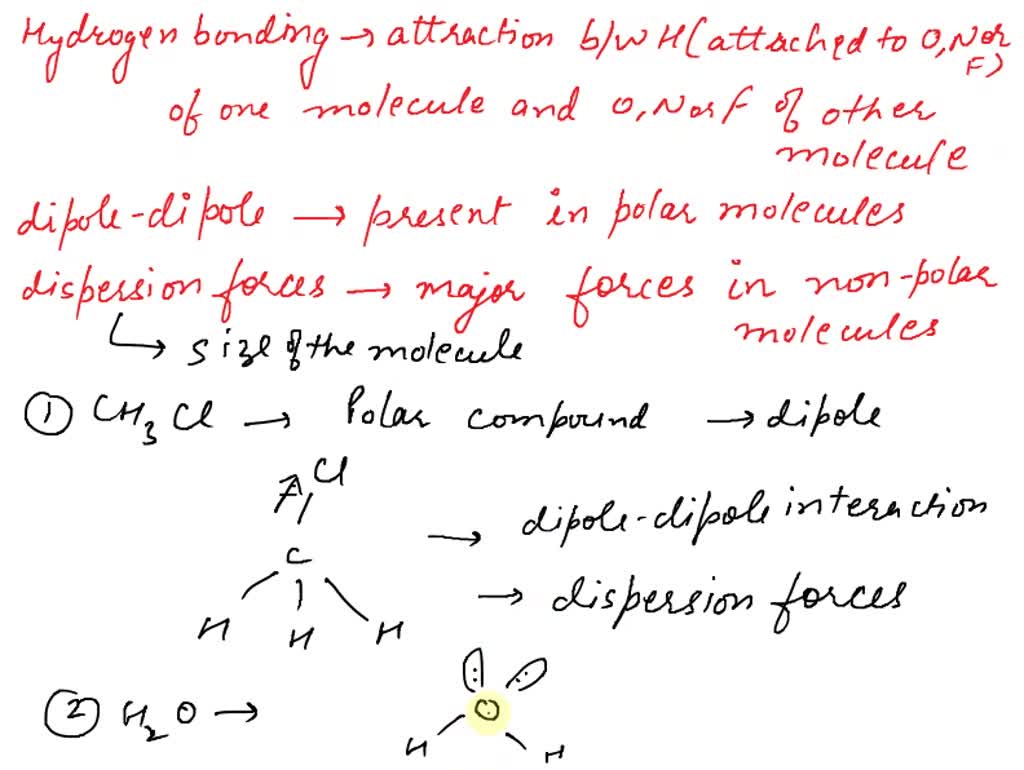 Hydrogen bonding → attraction b/w H (attached to O, N or F)
of one molecule and O, N or F of other
molecule
dipole-dipole → present in polar molecules
dispersion forces → major forces in non-polar
molecules
↳ size of the molecule
① CH3Cl → Polar compound → dipole
Cl
C
H H H
→ dipole-dipole interaction
→ dispersion forces
② H2O →
O
H H